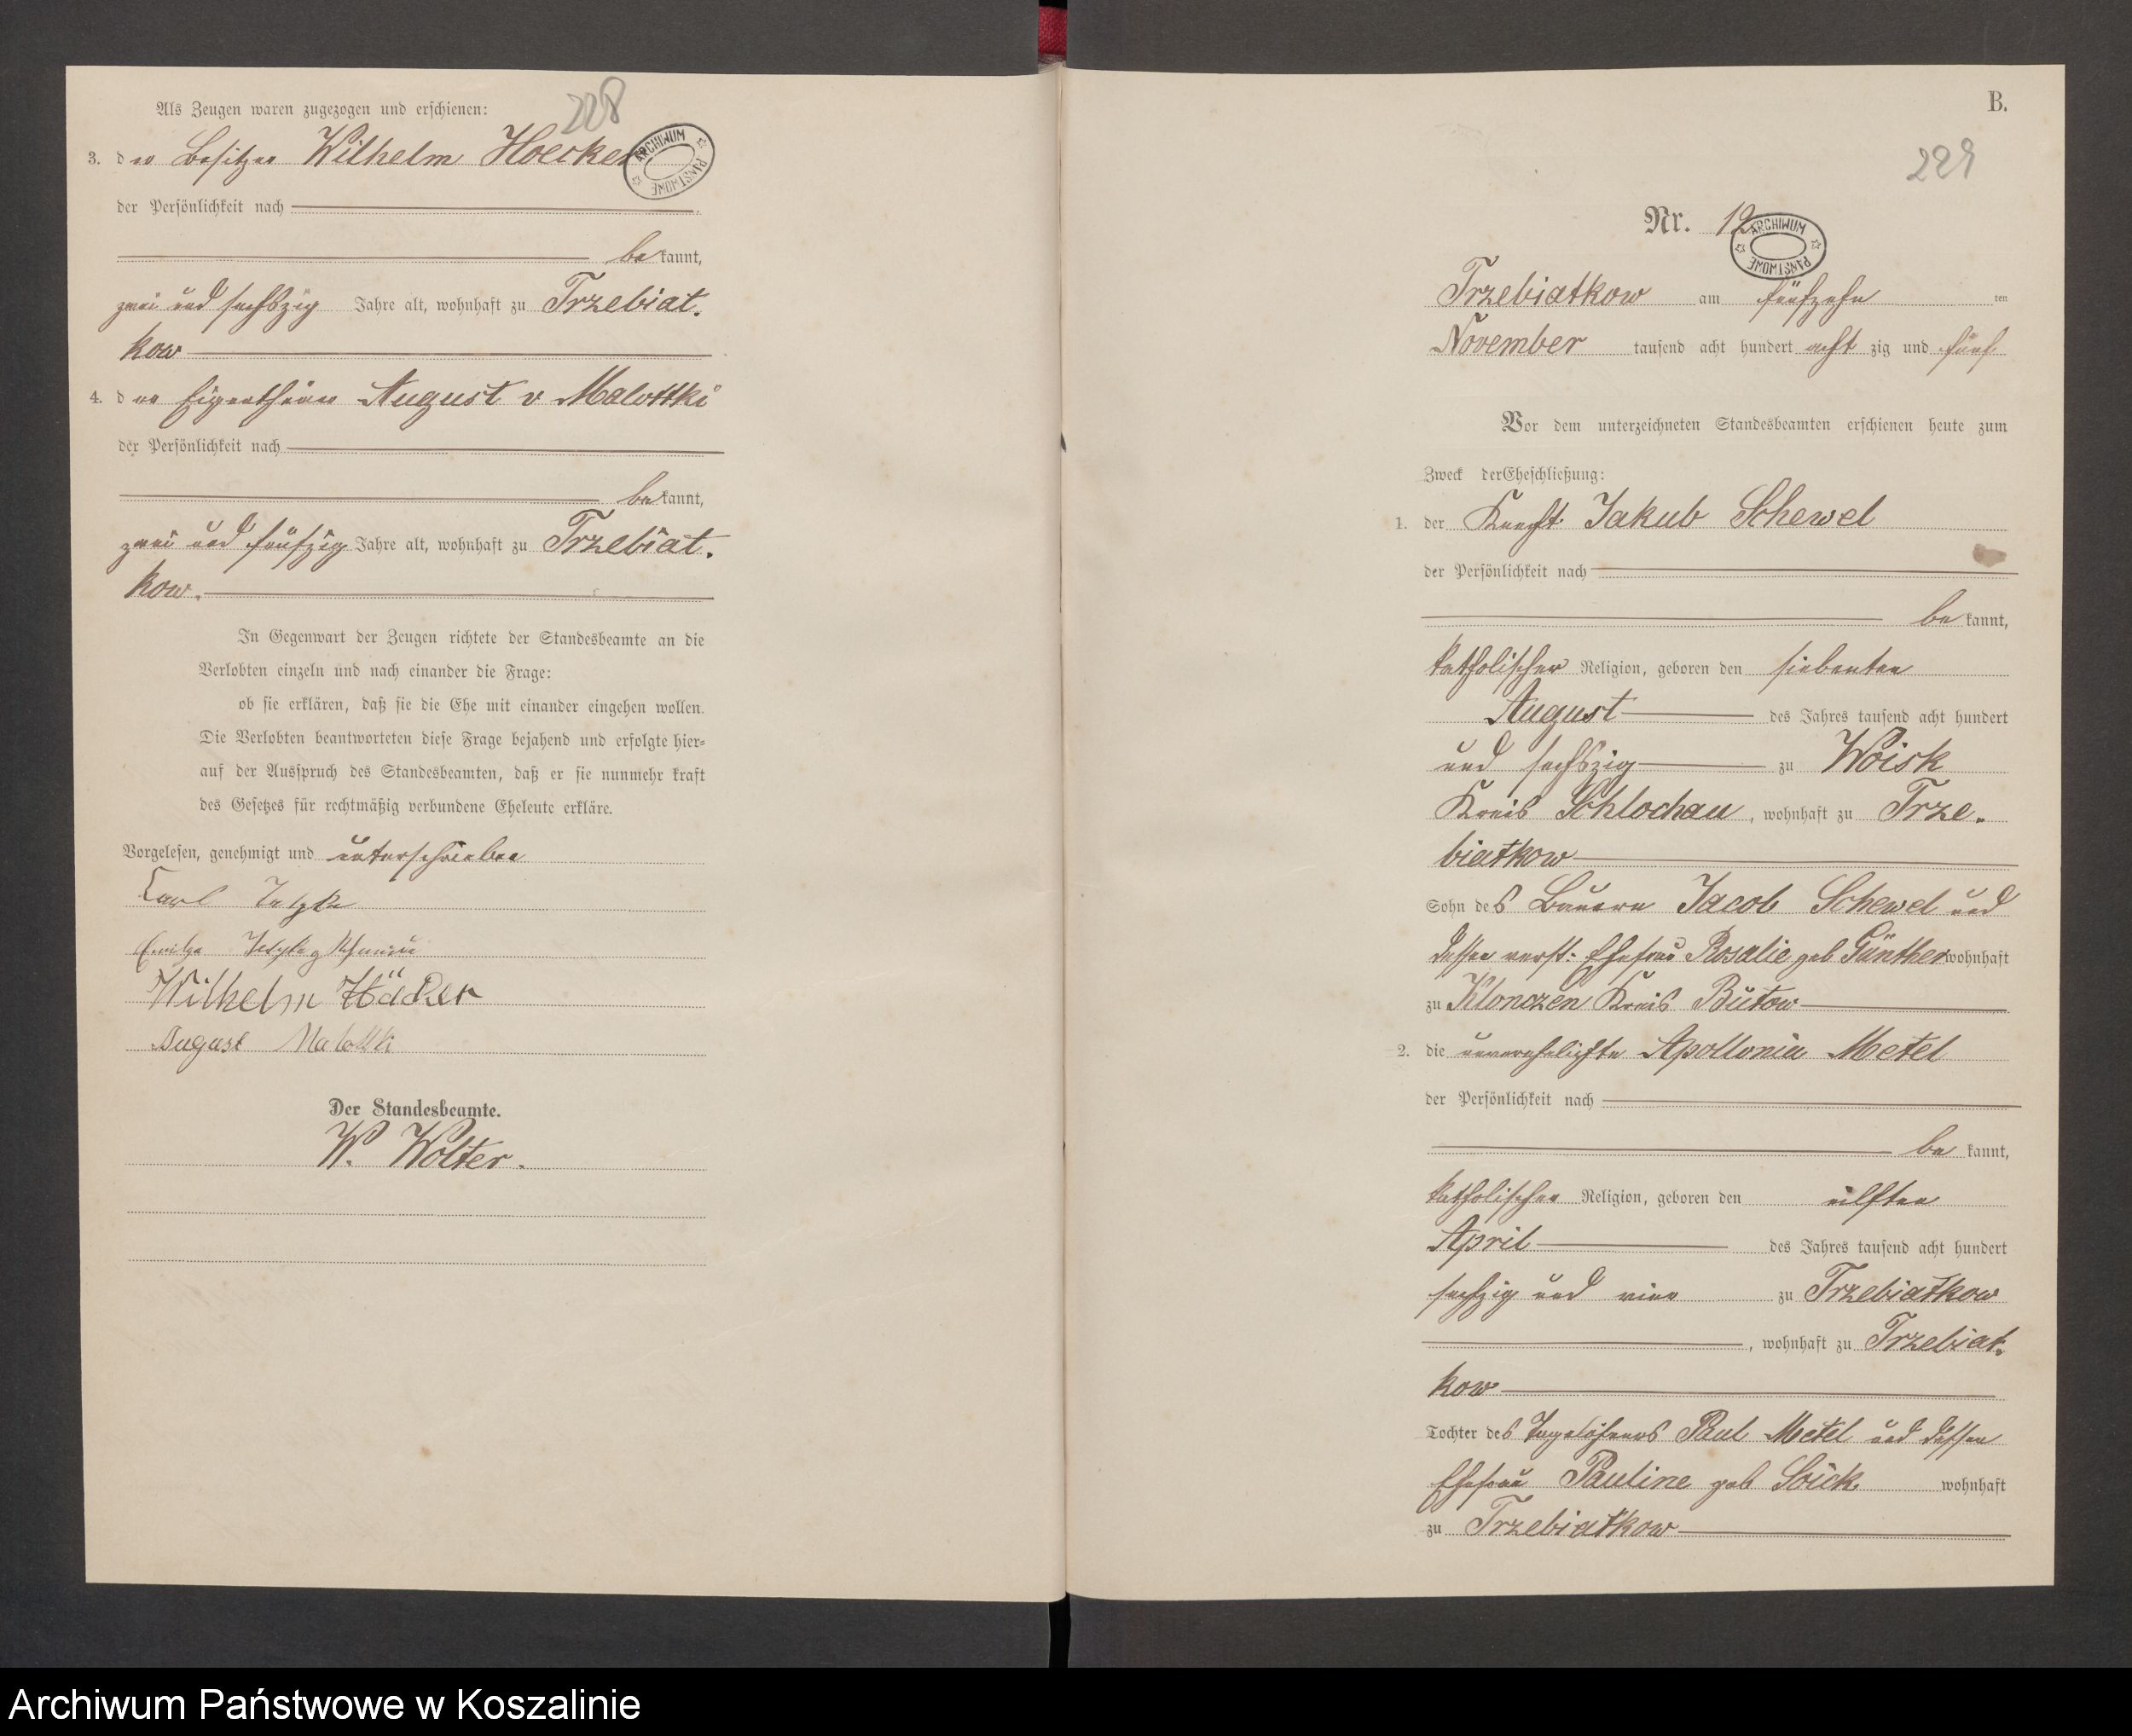 228
Als Zeugen waren zugezogen und erschienen:
3. der Besitzer Wilhelm Hoecker
ARCHIWUM PAŃSTWOWE
der Persönlichkeit nach
bekannt,
zwei und sechszig Jahre alt, wohnhaft zu Trzebiat.
kow
4. der Eigenthümer August v Malottki
der Persönlichkeit nach
bekannt,
zwei und fünfzig Jahre alt, wohnhaft zu Trzebiat.
kow.
In Gegenwart der Zeugen richtete der Standesbeamte an die
Verlobten einzeln und nach einander die Frage:
ob sie erklären, daß sie die Ehe mit einander eingehen wollen.
Die Verlobten beantworteten diese Frage bejahend und erfolgte hier-
auf der Ausspruch des Standesbeamten, daß er sie nunmehr kraft
des Gesetzes für rechtmäßig verbundene Eheleute erkläre.
Vorgelesen, genehmigt und unterschrieben
Carl
Wilhelm Häcker
August Malottki
Der Standesbeamte.
W. Wolter.
B.
229
Nr. 12
ARCHIWUM PAŃSTWOWE
Trzebiatkow am fünfzehn ten
November tausend acht hundert acht zig und fünf
Vor dem unterzeichneten Standesbeamten erschienen heute zum
Zweck der Eheschließung:
1. der Knecht Jakub Schewel
der Persönlichkeit nach
bekannt,
katholischer Religion, geboren den siebenten
August des Jahres tausend acht hundert
und sechszig zu Woisk
Kreis Schlochau, wohnhaft zu Trze.
biatkow
Sohn des Bauern Jacob Schewel und
dessen verst: Ehefrau Rosalie geb Günther wohnhaft
zu Klonczen Kreis Bütow
2. die unverehelichte Apollonia Metel
der Persönlichkeit nach
bekannt,
katholischer Religion, geboren den eilften
April des Jahres tausend acht hundert
sechzig und vier zu Trzebiatkow
, wohnhaft zu Trzebiat.
kow
Tochter des Tagelöhners Paul Metel und dessen
Ehefrau Pauline geb Soick wohnhaft
zu Trzebiatkow
Archiwum Państwowe w Koszalinie